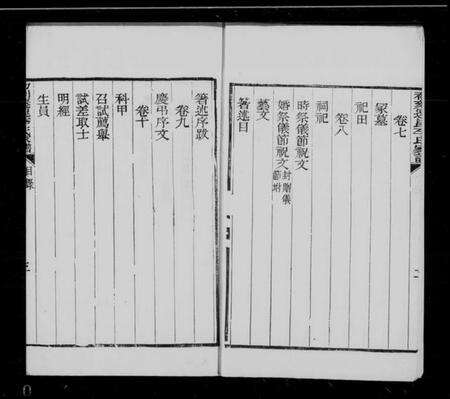 卷七
冢墓
祀田
卷八
祠祀
時祭儀節祝文
婚祭儀節祝文 封贈儀節附
藝文
著述目
著述序跋
卷九
慶弔序文
卷十
科甲
召試薦舉
試差取士
明經
生員
目錄
三